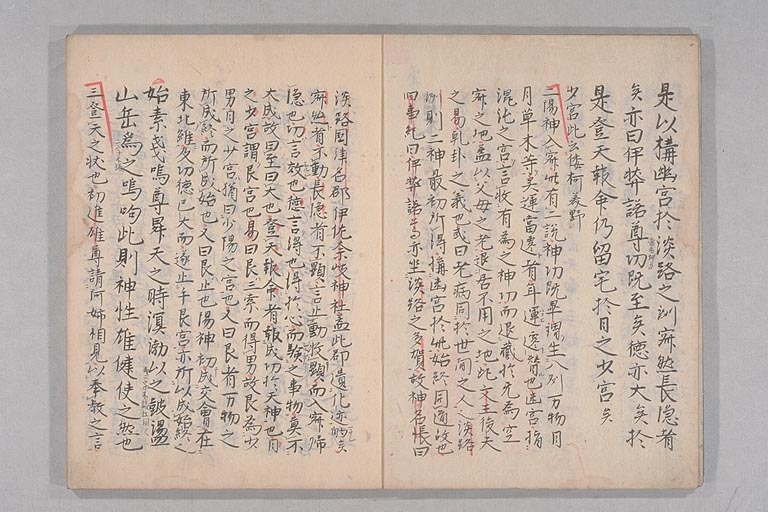 是以構幽宮於淡路之洲寂然長隱者
矣亦曰伊弉諾尊功既至矣德亦大矣於
是登天報命仍留宅於日之少宮矣
少宮此云倭柯美野
二陽神入寂此有二說神功既畢謂生八洲万物月
月草木等其運當遷者年運遷替也幽宮指
混沌之宮言收有為之神功而退藏於无為空
寂之地蓋以父母之老退居不用之地此文王後天
之易乾卦之義也或曰老病同於世間之人淡路
洲則二神最初所得構幽宮於此始終同道故也
旧事紀曰伊弉諾尊亦坐淡路之多賀故神名帳曰
淡路国津名郡伊佐奈岐神社蓋此即遺化迹的矣
寂然者不動長隱者不顯言止動收顯而入寂歸
隱也功言效也德言得也得於心而驗之事物莫不
大成故曰至曰大也登天報命者報成功於天神也日
之少宮謂艮宮也易曰艮三索而得男故艮為少
男日之少宮猶曰少陽之宮也又曰艮者万物之
所成終而所成始也又曰艮止也陽神初成交會在
東北維及功德已大而遂止于艮宮亦所以成始終之
始素戔嗚尊昇天之時溟渤以之皷盪
山岳為之鳴呴此則神性雄健使之然也
三登天之狀也初進雄尊請向姉相見以奉教之言